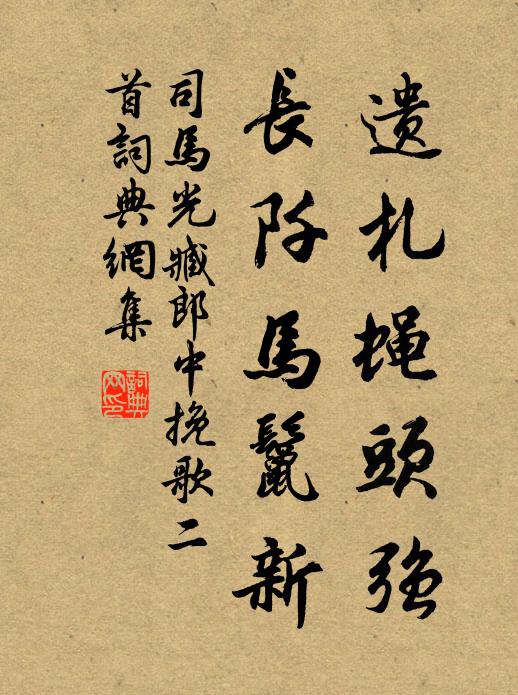 遗札蝇頭强
長阡馬鬣新
司馬光臧郎中挽歌二
首詞典網集